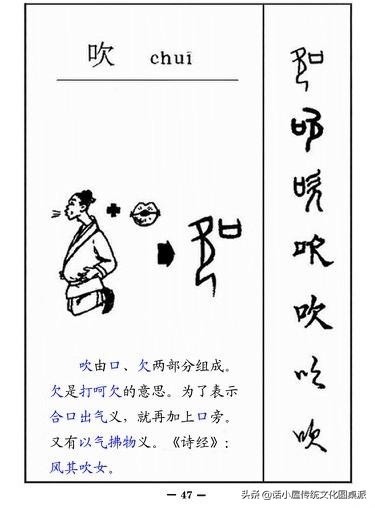 吹 chuī
吹由口、欠两部分组成。
欠是打呵欠的意思。为了表示
合口出气义，就再加上口旁。
又有以气拂物义。《诗经》：
风其吹女。
— 47 —
头条@诺小屋传统文化圆桌派